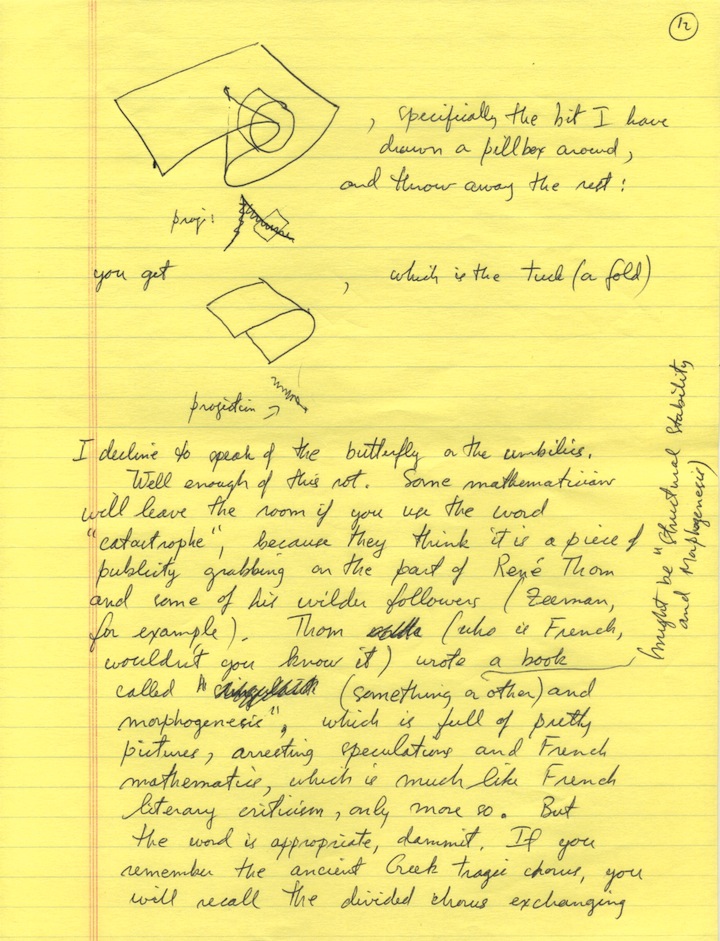 12
, specifically the bit I have
drawn a pillbox around,
and throw away the rest:
proj:
you get , which is the tuck (a fold)
projection →
I decline to speak of the butterfly or the umbilics.
Well enough of this rot. Some mathematicians
will leave the room if you use the word
"catastrophe", because they think it is a piece of
publicity grabbing on the part of René Thom
and some of his wilder followers (Zeeman,
for example). Thom (who is French,
wouldn't you know it) wrote a book
called " (something or other) and
morphogenesis", which is full of pretty
pictures, arresting speculations and French
mathematics, which is much like French
literary criticism, only more so. But
the word is appropriate, dammit. If you
remember the ancient Greek tragic chorus, you
will recall the divided chorus exchanging
(might be "Structural Stability
and Morphogenesis)